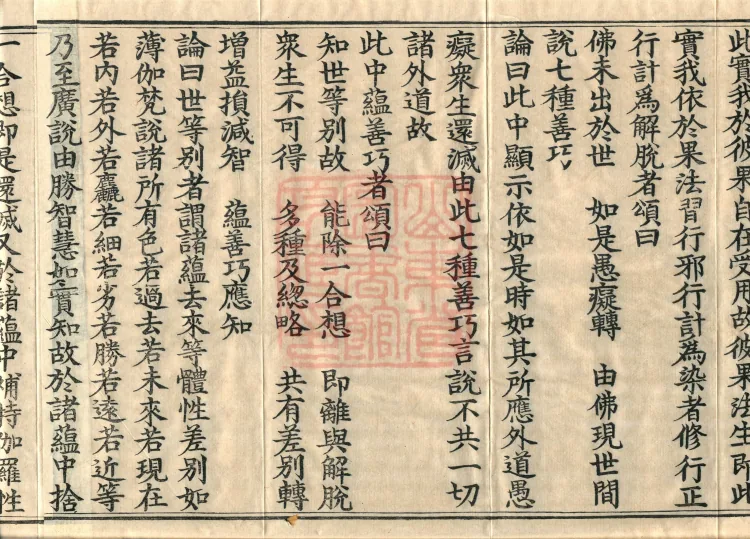 此實我於彼果自在受用故彼果法生即此
實我依於果法習行邪行計為染者修行正
行計爲解脫者頌曰
佛未出於世　如是愚癡轉　由佛現世間
說七種善巧
論曰此中顯示依如是時如其所應外道愚
癡衆生還滅由此七種善巧言說不共一切
諸外道故
此中蘊善巧者頌曰
知世等別故　能除一合想　即離與解脫
衆生不可得　多種及緫略　共有差別轉
增益損減智　蘊善巧應知
論曰世等別者謂諸蘊去來等體性差別如
薄伽梵說諸所有色若過去若未來若現在
若內若外若麤若細若劣若勝若遠若近等
乃至廣說由勝智慧如實知故於諸蘊中捨
一合想即是還滅又於諸蘊中補特伽羅性